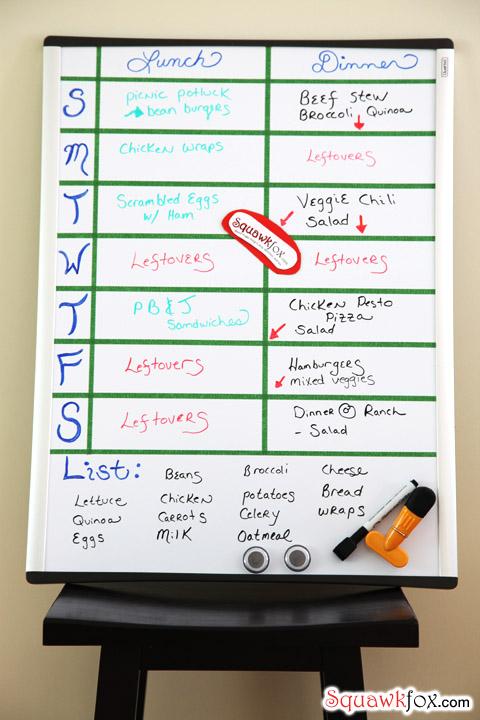 Lunch Dinner
S picnic potluck Beef Stew
bean burgers Broccoli Quinoa
M Chicken wraps Leftovers
T Scrambled Eggs Veggie Chili
w/ Ham Salad
Squawkfox.com
W Leftovers Leftovers
T PB & J Chicken Pesto
Sandwiches Pizza
Salad
F Leftovers Hamburgers
mixed veggies
S Leftovers Dinner @ Ranch
- Salad
List: Beans Broccoli Cheese
Lettuce Chicken potatoes Bread
Quinoa Carrots Celery wraps
Eggs Milk Oatmeal
Squawkfox.com